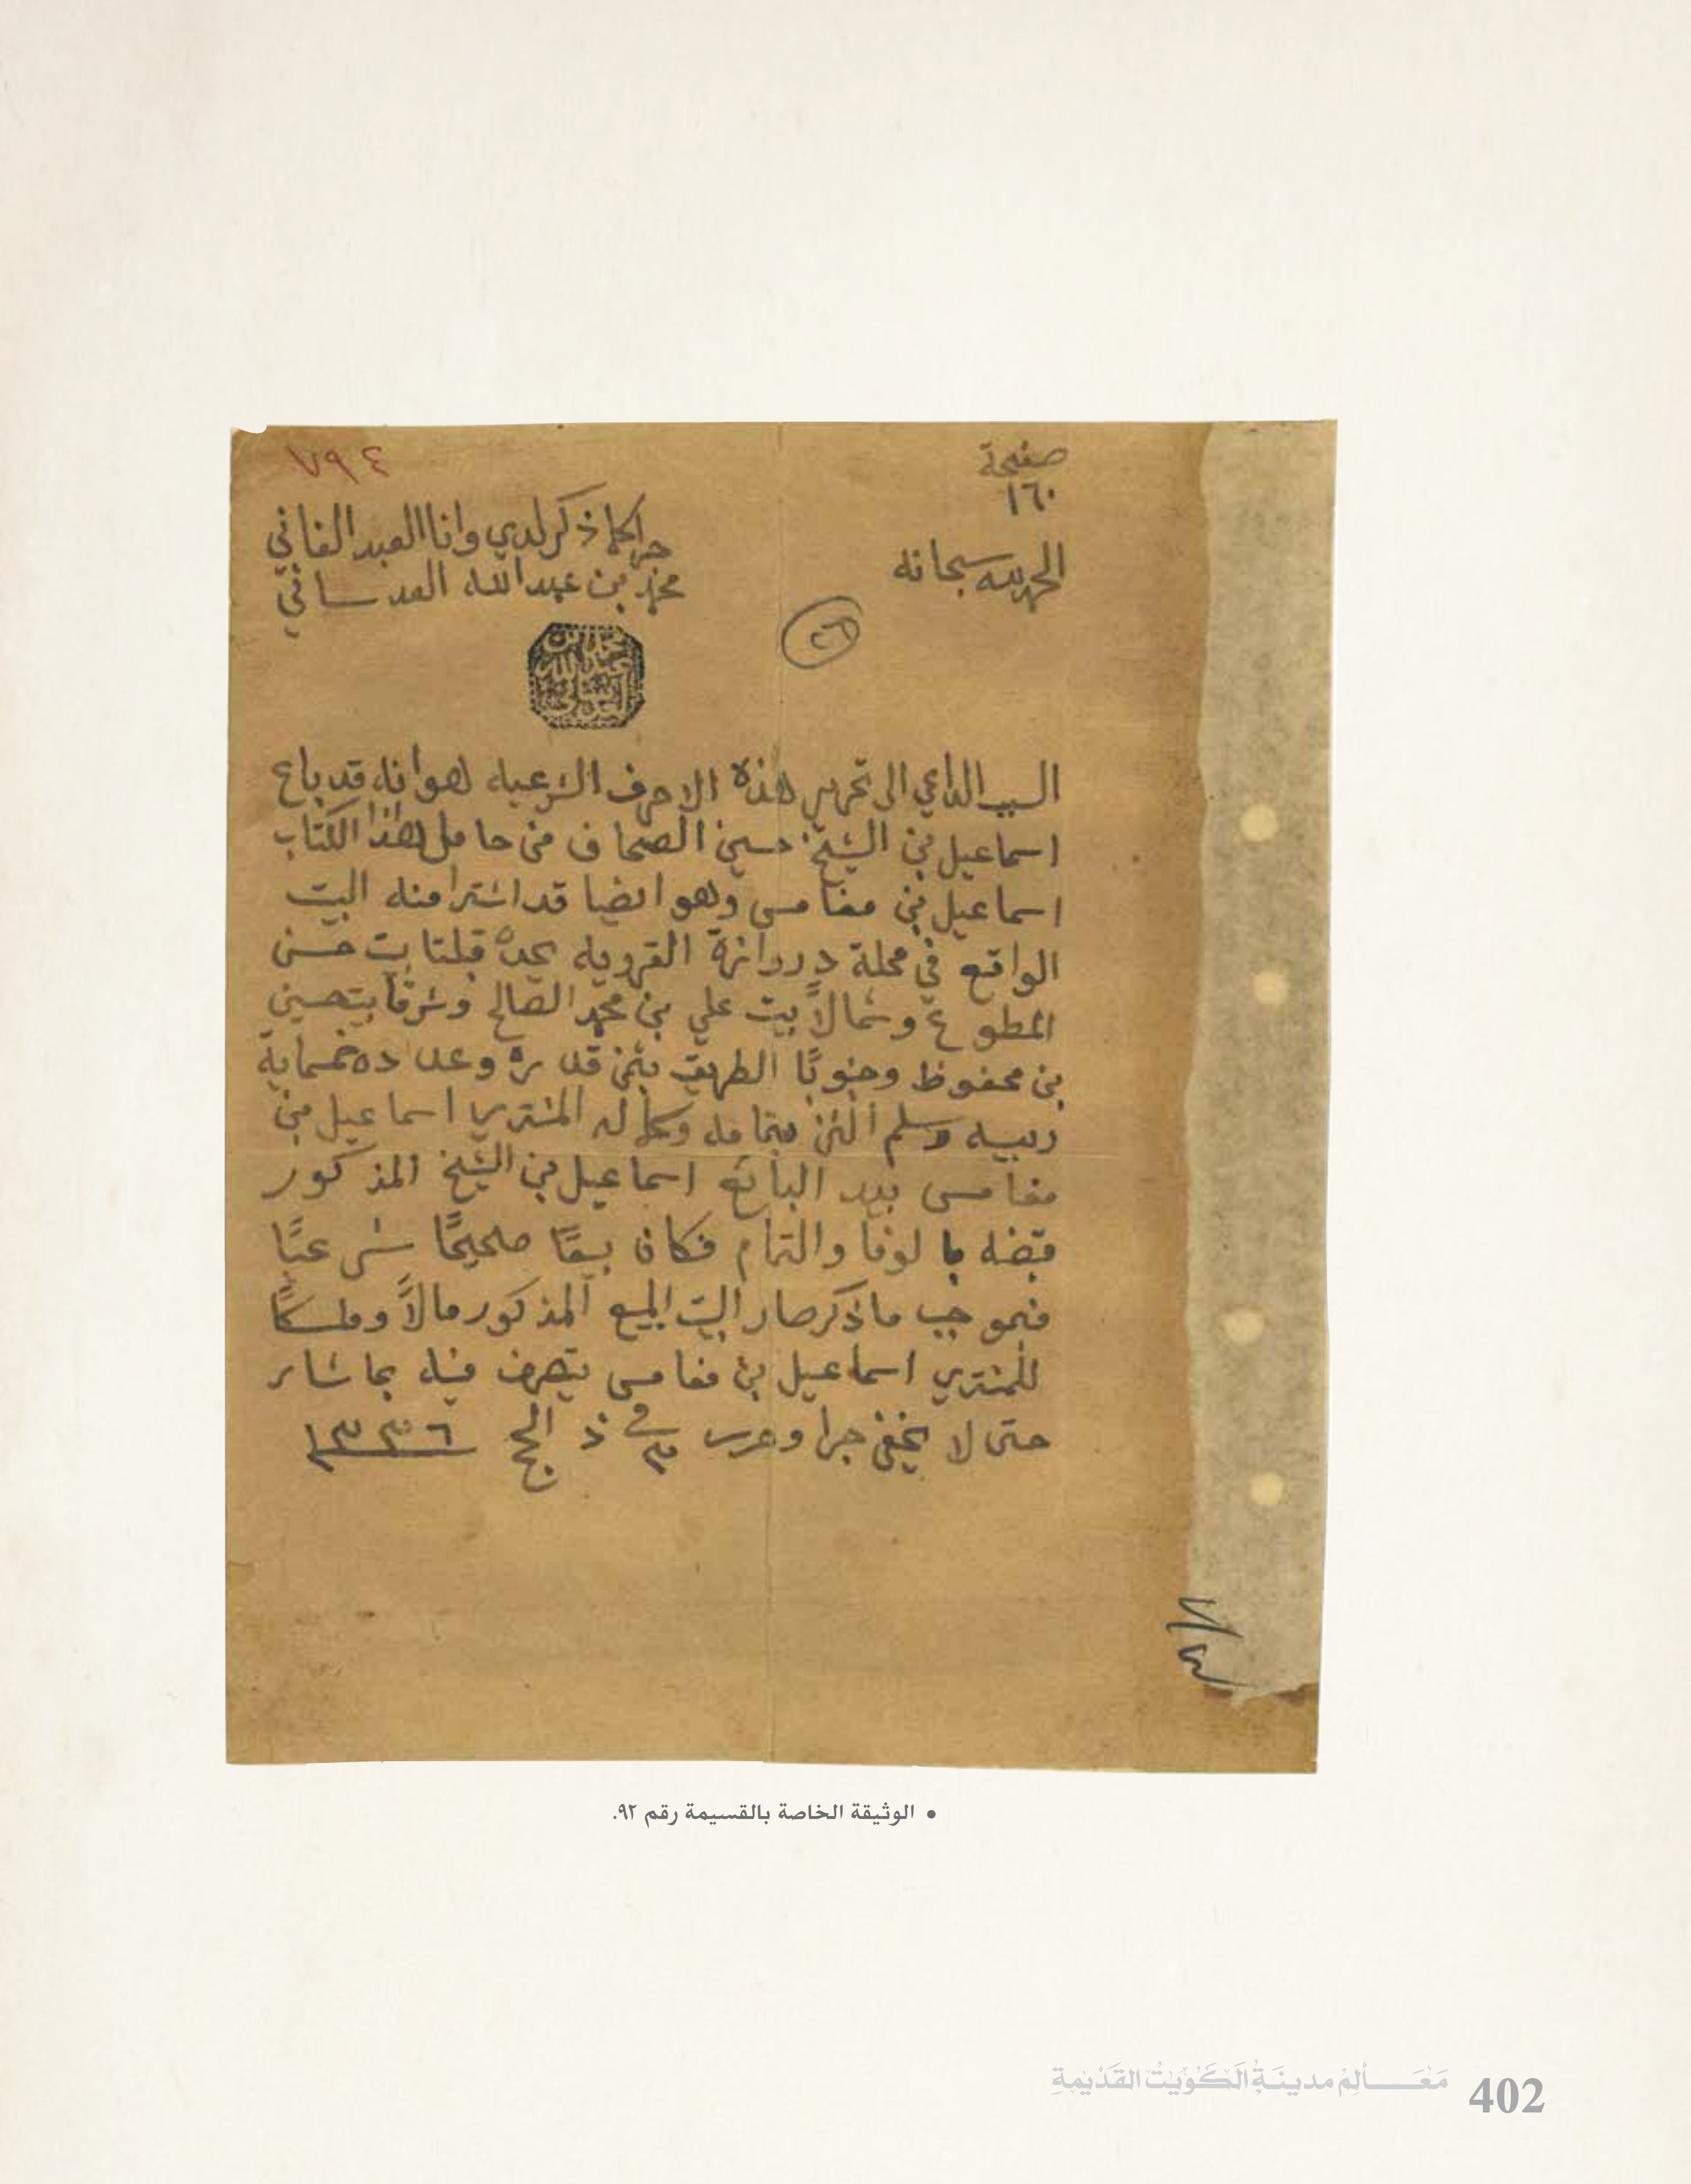 ٧٩٤
صفحة
١٦٠
الحمد لله سبحانه
جرا كما ذكر لدي وانا العبد الفاني
محمد بن عبدالله العدساني
٢٦
محمد بن عبدالله العدساني
السبب الداعي الى تحرير هذه الاحرف الشرعيه هو انه قد باع
اسماعيل بن الشيخ حسين الصحاف من حامل هذا الكتاب
اسماعيل بن مغامس وهو ايضا قد اشترا منه البيت
الواقع في محلة دروازة القرويه يحده قبلتا بيت حسن
المطوع وشمالاً بيت علي بن محمد الصالح وشرقاً بيت حسين
بن محفوظ وجنوبًا الطريق بثمن قدره وعدده خمسماية
ربيه وسلم الثمن بتمامه وكماله المشتري اسماعيل بن
مغامس بيد البائع اسماعيل بن الشيخ المذكور
قبضه بالوفا والتمام فكان بيعًا صحيحًا شرعيًا
فبموجب ما ذكر صار البيت المبيع المذكور مالاً وملكًا
للمشتري اسماعيل بن مغامس يتصرف فيه بما شا
حتى لا يخفى جرا وحرر في ٣ ذ الحج ١٣٣٦
• الوثيقة الخاصة بالقسيمة رقم ٩٢.
مَعَالِمُ مدينَةِ الكُوَيْتُ القَدْيمَةِ 402